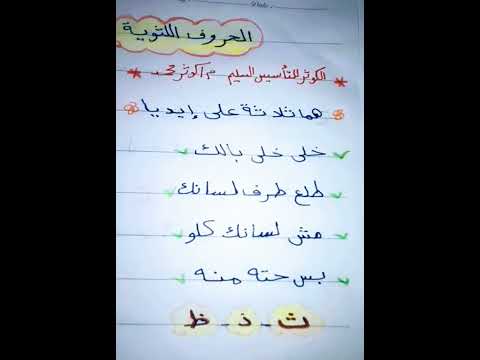 الحروف اللثوية
الكوثر للتأسيس السليم م/كوثر محمد
هما ثلاثة على إيديا
خلى خلى بالك
طلع طرف لسانك
مش لسانك كلو
بس حته منه
ث - ذ - ظ